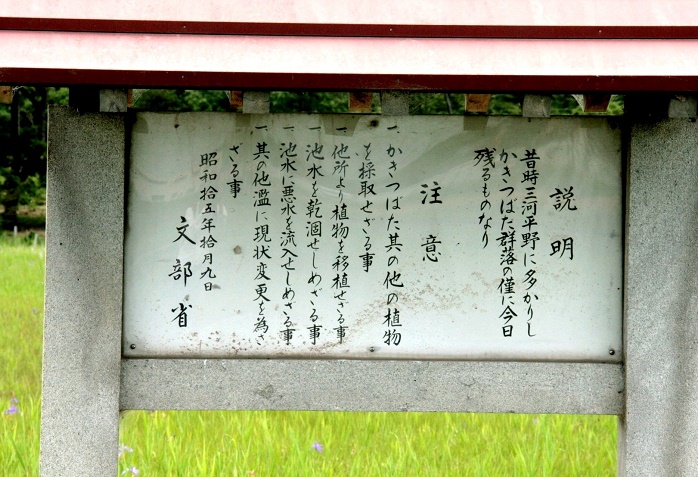 説明
昔時三河平野に多かりし
かきつばた群落の僅に今日
残るものなり
注意
一、かきつばた其の他の植物
を採取せざる事
一、他所より植物を移植せざる事
一、池水を乾涸せしめざる事
一、池水に悪水を流入せしめざる事
一、其の他濫に現状変更を為さ
ざる事
昭和拾五年拾月九日
文部省